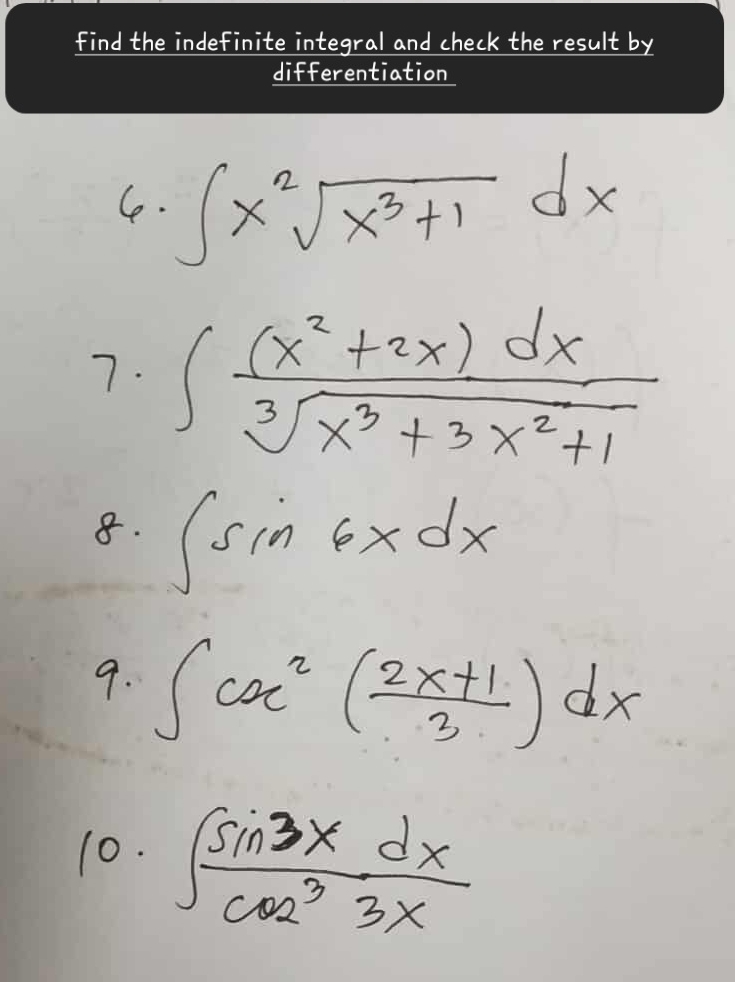 find the indefinite integral and check the result by
differentiation
6. ∫ x² √(x³+1) dx
7. ∫ (x² + 2x) dx / ∛(x³ + 3x² + 1)
8. ∫ sin 6x dx
9. ∫ csc² ((2x+1)/3) dx
10. ∫ sin3x dx / cos³ 3x